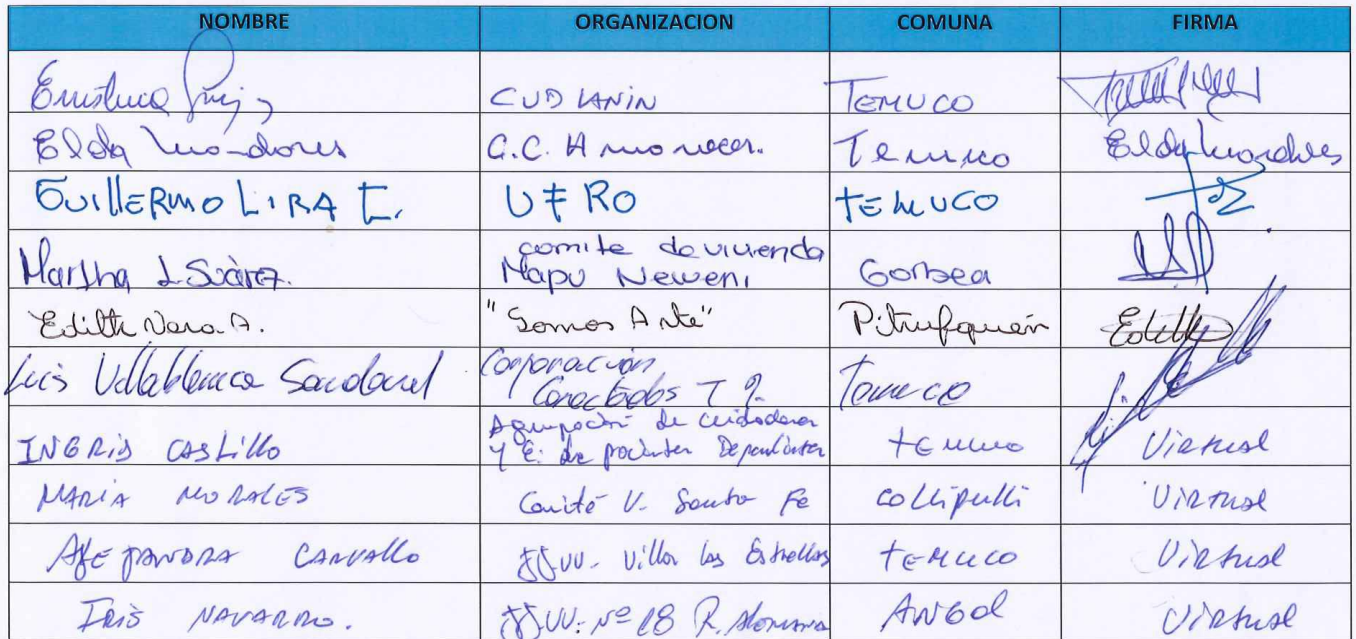 NOMBRE ORGANIZACION COMUNA FIRMA
CUD LANIN TEMUCO
Elda C.C. Amonocer. Temuco Elda
GUILLERMO LIRA UFRO TEMUCO
comite de vivienda
Martha L. Suárez. Mapu Neweni Gorbea
Edith Vera A. "Somos Arte" Pitrufquén Edith
Luis Villablanca Sandoval Corporación
Conectados T 9. Temuco
Agrupación de cuidadoras
INGRID CASTILLO y C. de pacientes Dependientes temuco Virtual
MARIA MORALES Comité V. Santa Fe collipulli Virtual
ALEJANDRA CARVALLO JJVV. Villa las Estrellas temuco Virtual
IRIS NAVARRO. JJVV. Nº 18 R. Alemania ANGOL Virtual